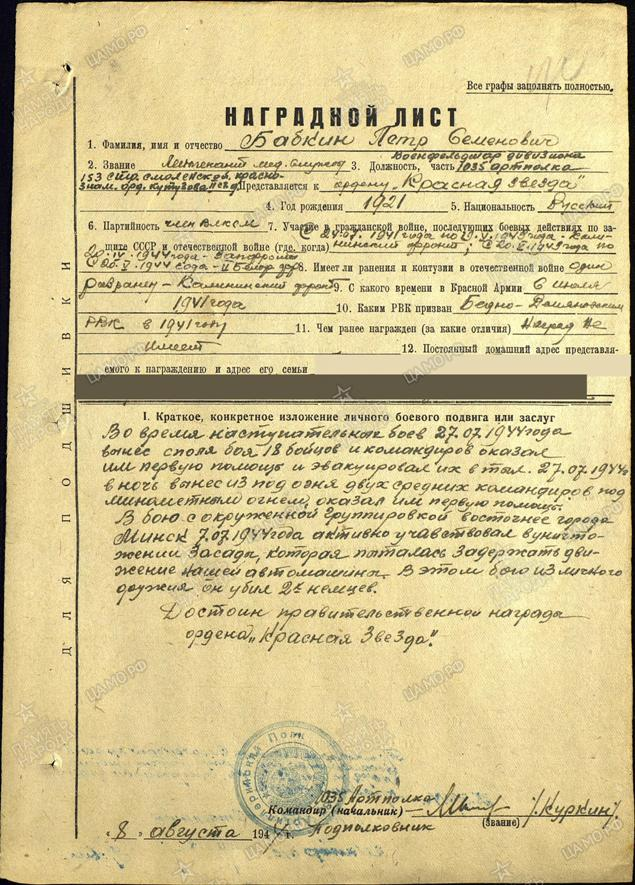 Все графы заполнять полностью.
НАГРАДНОЙ ЛИСТ
1. Фамилия, имя и отчество Бабкин Петр Семенович
2. Звание Лейтенант мед. службы 3. Должность, часть Военфельдшер дивизиона 1035 артполка
153 стр. смоленской, красно-
знам. орд. кутузова Представляется к ордену „Красная звезда"
4. Год рождения 1921 5. Национальность Русский
6. Партийность член ВЛКСМ 7. Участие в гражданской войне, последующих боевых действиях по за-
щите СССР и отечественной войне (где, когда)
1944 года - Запфронт
1944 года - II Белор. фр. 8. Имеет ли ранения и контузии в отечественной войне один
раз ранен - Калининский фронт 9. С какого времени в Красной Армии с июля
1941 года 10. Каким РВК призван Бедно - Демьяновским
РВК в 1941 году 11. Чем ранее награжден (за какие отличия) Наград не
имеет 12. Постоянный домашний адрес представля-
емого к награждению и адрес его семьи
I. Краткое, конкретное изложение личного боевого подвига или заслуг
Во время наступательных боев 27.07.1944 года
вынес с поля боя 18 бойцов и командиров оказал
им первую помощь и эвакуировал их в тыл. 27.07.1944г
в ночь вынес из под огня двух средних командиров под
минометным огнем, оказал им первую помощь.
В бою с окруженной группировкой восточнее города
Минск 7.07.1944 года активно учавствовал в уничто-
жении засады, которая пыталась задержать дви-
жение нашей автомашины. В этом бою из личного
оружия он убил 2х немцев.
Достоин правительственной награды
ордена „Красная Звезда".
1035 Артполка
Командир (начальник) /Куркин/
Подполковник (звание)
„8" августа 1944 г.
ДЛЯ ПОДШИВКИ
ЦАМО.РФ
ПАМЯТЬ НАРОДА